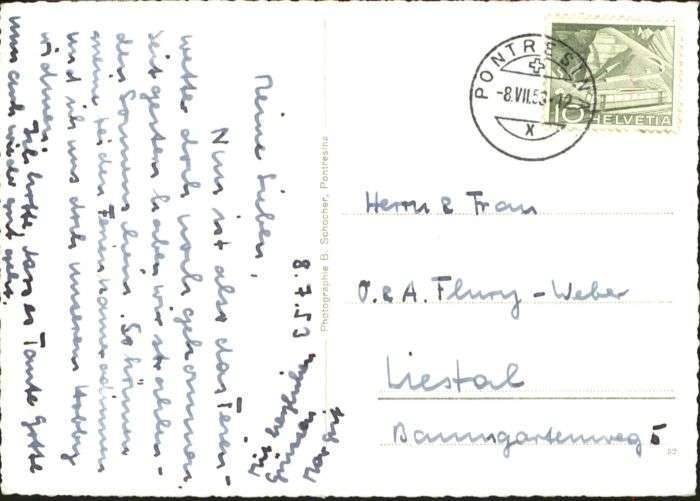 8.7.53
Meine Lieben,
Nun ist also das Ferien-
wetter doch noch gekommen.
Seit gestern haben wir strahlen-
den Sonnenschein. So können
meine beiden Ferienkameradinnen
und ich uns doch unserem Hobby
widmen.
Ich hoffe, dass es Tante Gotte
nun auch wieder gut geht.
Mit herzlichen
Grüssen
Margrit
Photographie B. Schocher, Pontresina
PONTRESINA
-8.VII.53-12
X
10 HELVETIA
Herrn & Frau
O. & A. Flury-Weber
Liestal
Baumgartenweg 5